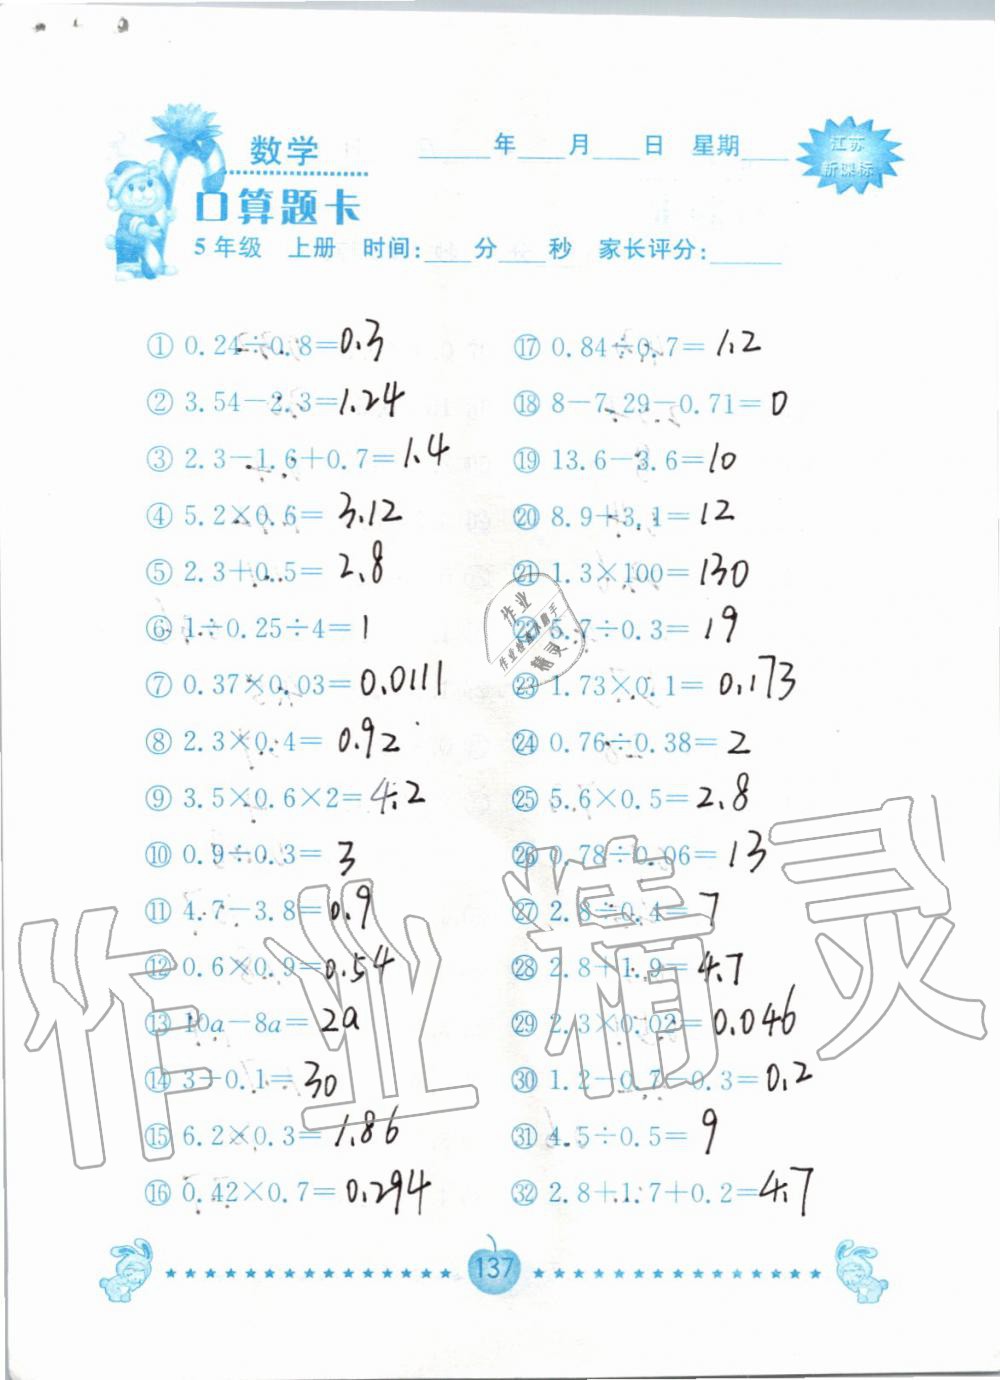 数学
____年____月____日 星期____
江苏
新课标
口算题卡
5年级 上册 时间:____分____秒 家长评分:____
① 0.24÷0.8=0.3
② 3.54-2.3=1.24
③ 2.3-1.6+0.7=1.4
④ 5.2×0.6=3.12
⑤ 2.3+0.5=2.8
⑥ 1÷0.25÷4=1
⑦ 0.37×0.03=0.0111
⑧ 2.3×0.4=0.92
⑨ 3.5×0.6×2=4.2
⑩ 0.9÷0.3=3
⑪ 4.7-3.8=0.9
⑫ 0.6×0.9=0.54
⑬ 10a-8a=2a
⑭ 3÷0.1=30
⑮ 6.2×0.3=1.86
⑯ 0.42×0.7=0.294
⑰ 0.84÷0.7=1.2
⑱ 8-7.29-0.71=0
⑲ 13.6-3.6=10
⑳ 8.9+3.1=12
㉑ 1.3×100=130
㉒ 5.7÷0.3=19
㉓ 1.73×0.1=0.173
㉔ 0.76÷0.38=2
㉕ 5.6×0.5=2.8
㉖ 0.78÷0.06=13
㉗ 2.8÷0.4=7
㉘ 2.8+1.9=4.7
㉙ 2.3×0.02=0.046
㉚ 1.2-0.7-0.3=0.2
㉛ 4.5÷0.5=9
㉜ 2.8+1.7+0.2=4.7
作业
作业检查小助手
精灵
作业精灵
137